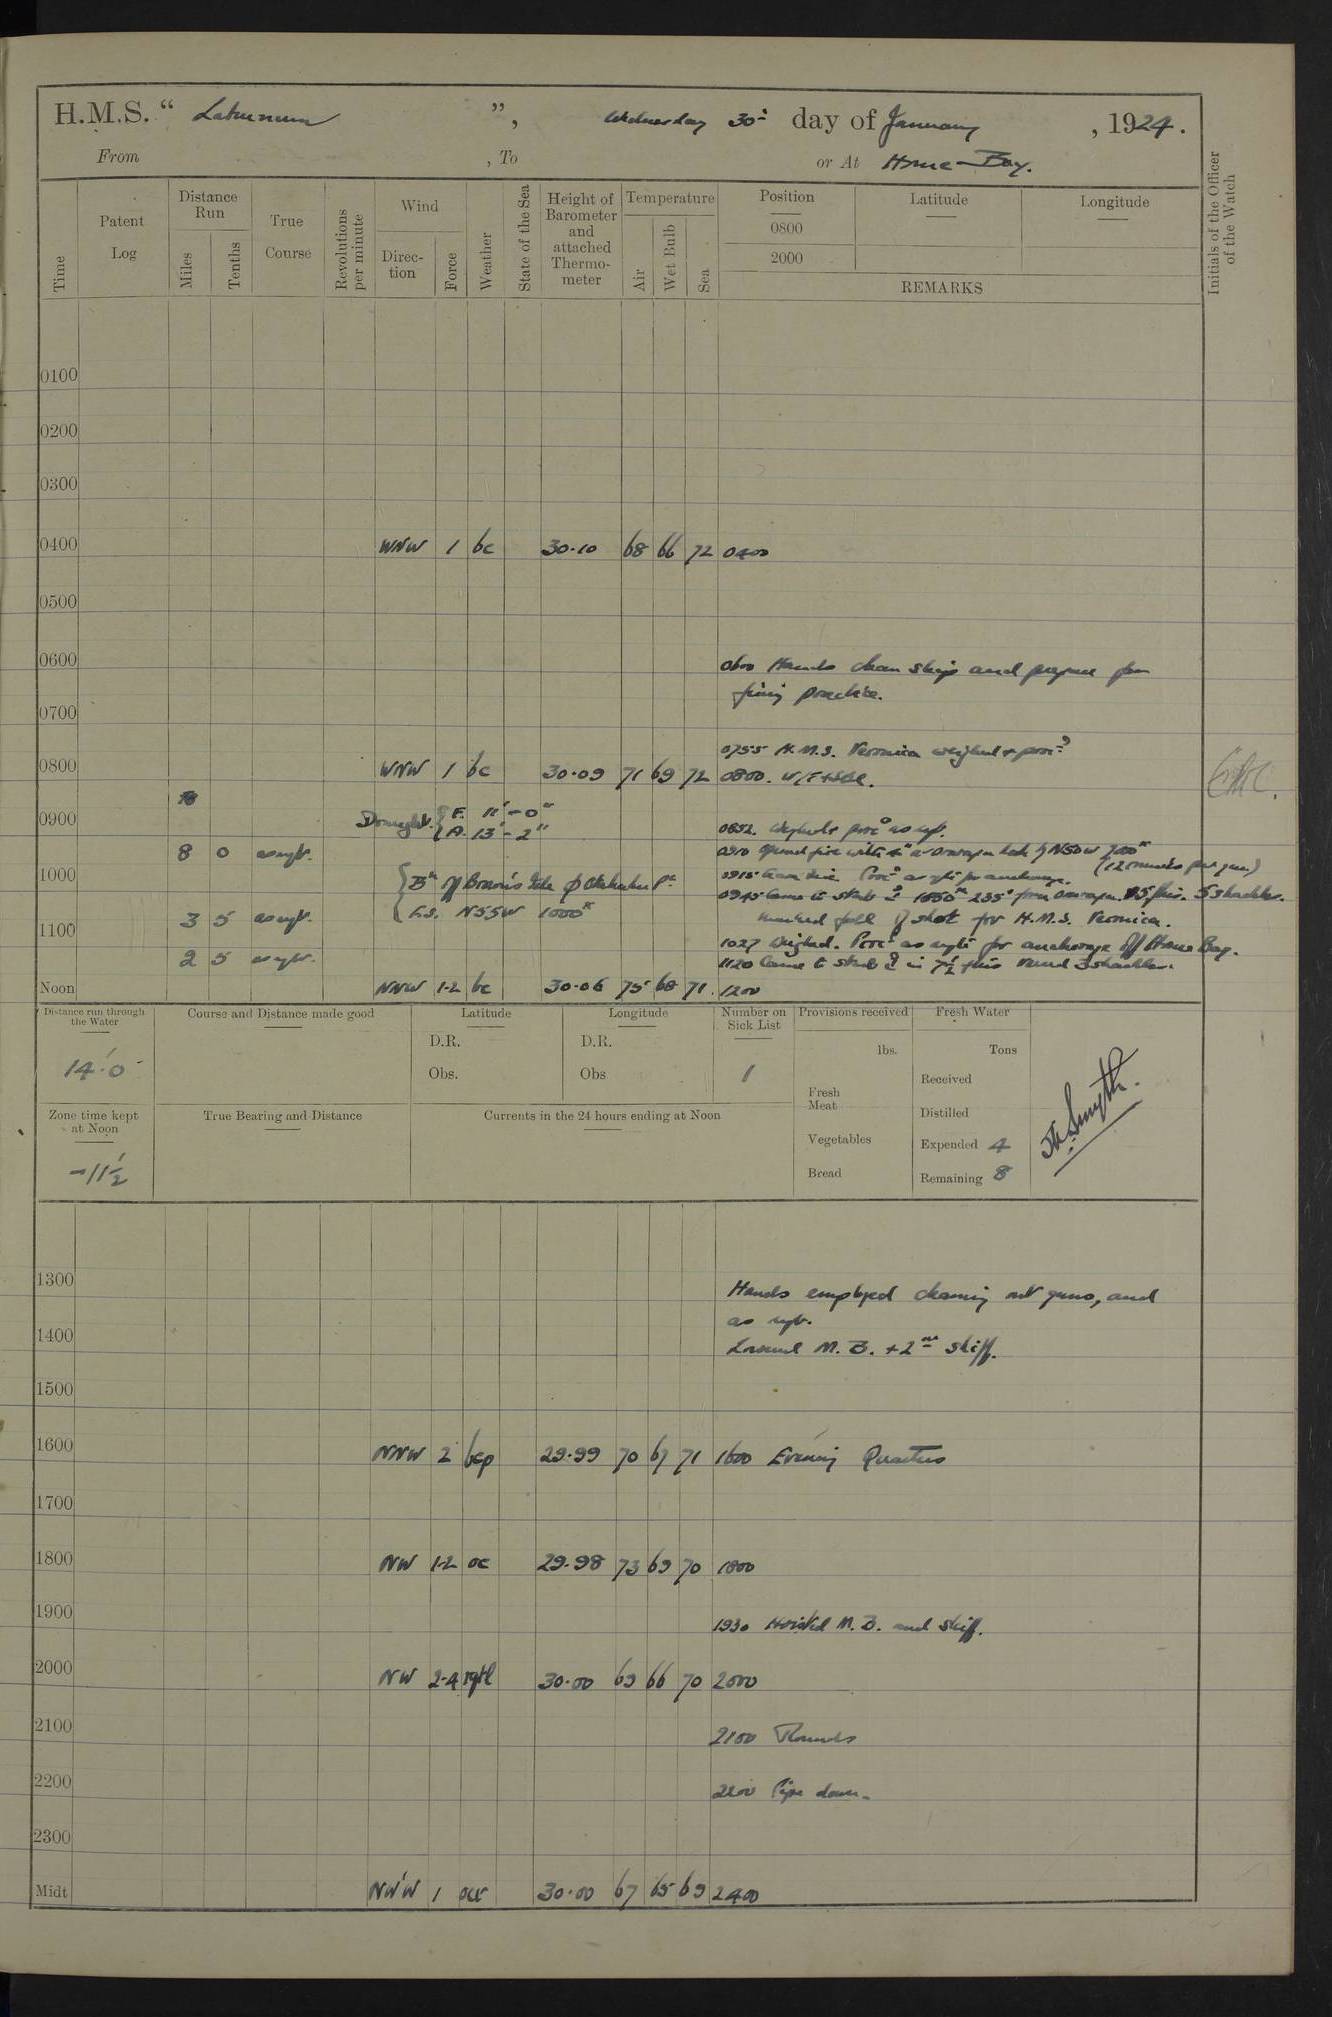 H.M.S. " Laburnum ", Wednesday 30th day of January, 1924.
From , To or At Home Bay.
Time
Patent Log
Distance Run
Miles
Tenths
True Course
Revolutions per minute
Wind
Direction
Force
Weather
State of the Sea
Height of Barometer and attached Thermometer
Temperature
Air
Wet Bulb
Sea
Position
0800
2000
Latitude
Longitude
REMARKS
Initials of the Officer of the Watch
0100
0200
0300
0400 WNW 1 bc 30.10 68 66 72 0400
0500
0600 0600 Hands clean ship and prepare for
firing practice.
0700
0755 H.M.S. Veronica weighed & proc:d
0800 WNW 1 bc 30.09 71 69 72 0800.
Draught. { F. 11'-0"
A. 13'-2"
0900
0852. Weighed & proc:d as req.
8 0 as reqt. 0910 Opened fire with 4" N50W 7000x (12 rounds per gun)
1000 { Bn off Brown's Isle
0915 Cease fire. Proc:d as reqte for anchorage.
F.S. N55W 1000x
0945 Came to 1650x 235° from 5 shackles.
3 5 as reqt. marked fall of shot for H.M.S. Veronica.
1100 1027 Weighed. Proc:d as reqte for anchorage off Home Bay.
2 5 as reqt. 1120 Came to in 7½ fms veered 3 shackles.
Noon NNW 1-2 bc 30.06 75 68 71 1200
Distance run through the Water
14.0
Course and Distance made good
Latitude
D.R.
Obs.
Longitude
D.R.
Obs
Number on Sick List
1
Provisions received
lbs.
Fresh Meat
Vegetables
Bread
Fresh Water
Tons
Received
Distilled
Expended 4
Remaining 8
Zone time kept at Noon
-11½
True Bearing and Distance
Currents in the 24 hours ending at Noon
Smyth.
1300 Hands employed cleaning out guns, and
as reqt.
1400 Lowered M.B. + 2nd skiff.
1500
1600 NNW 2 bcp 29.99 70 67 71 1600 Evening Quarters
1700
1800 NW 1-2 oc 29.98 73 69 70 1800
1900 1930 Hoisted M.B. and skiff.
2000 NW 2-4 rqtl 30.00 69 66 70 2000
2100 2100 Rounds
2200 2200 Pipe down.
2300
Midt NW'W 1 ocr 30.00 67 65 69 2400